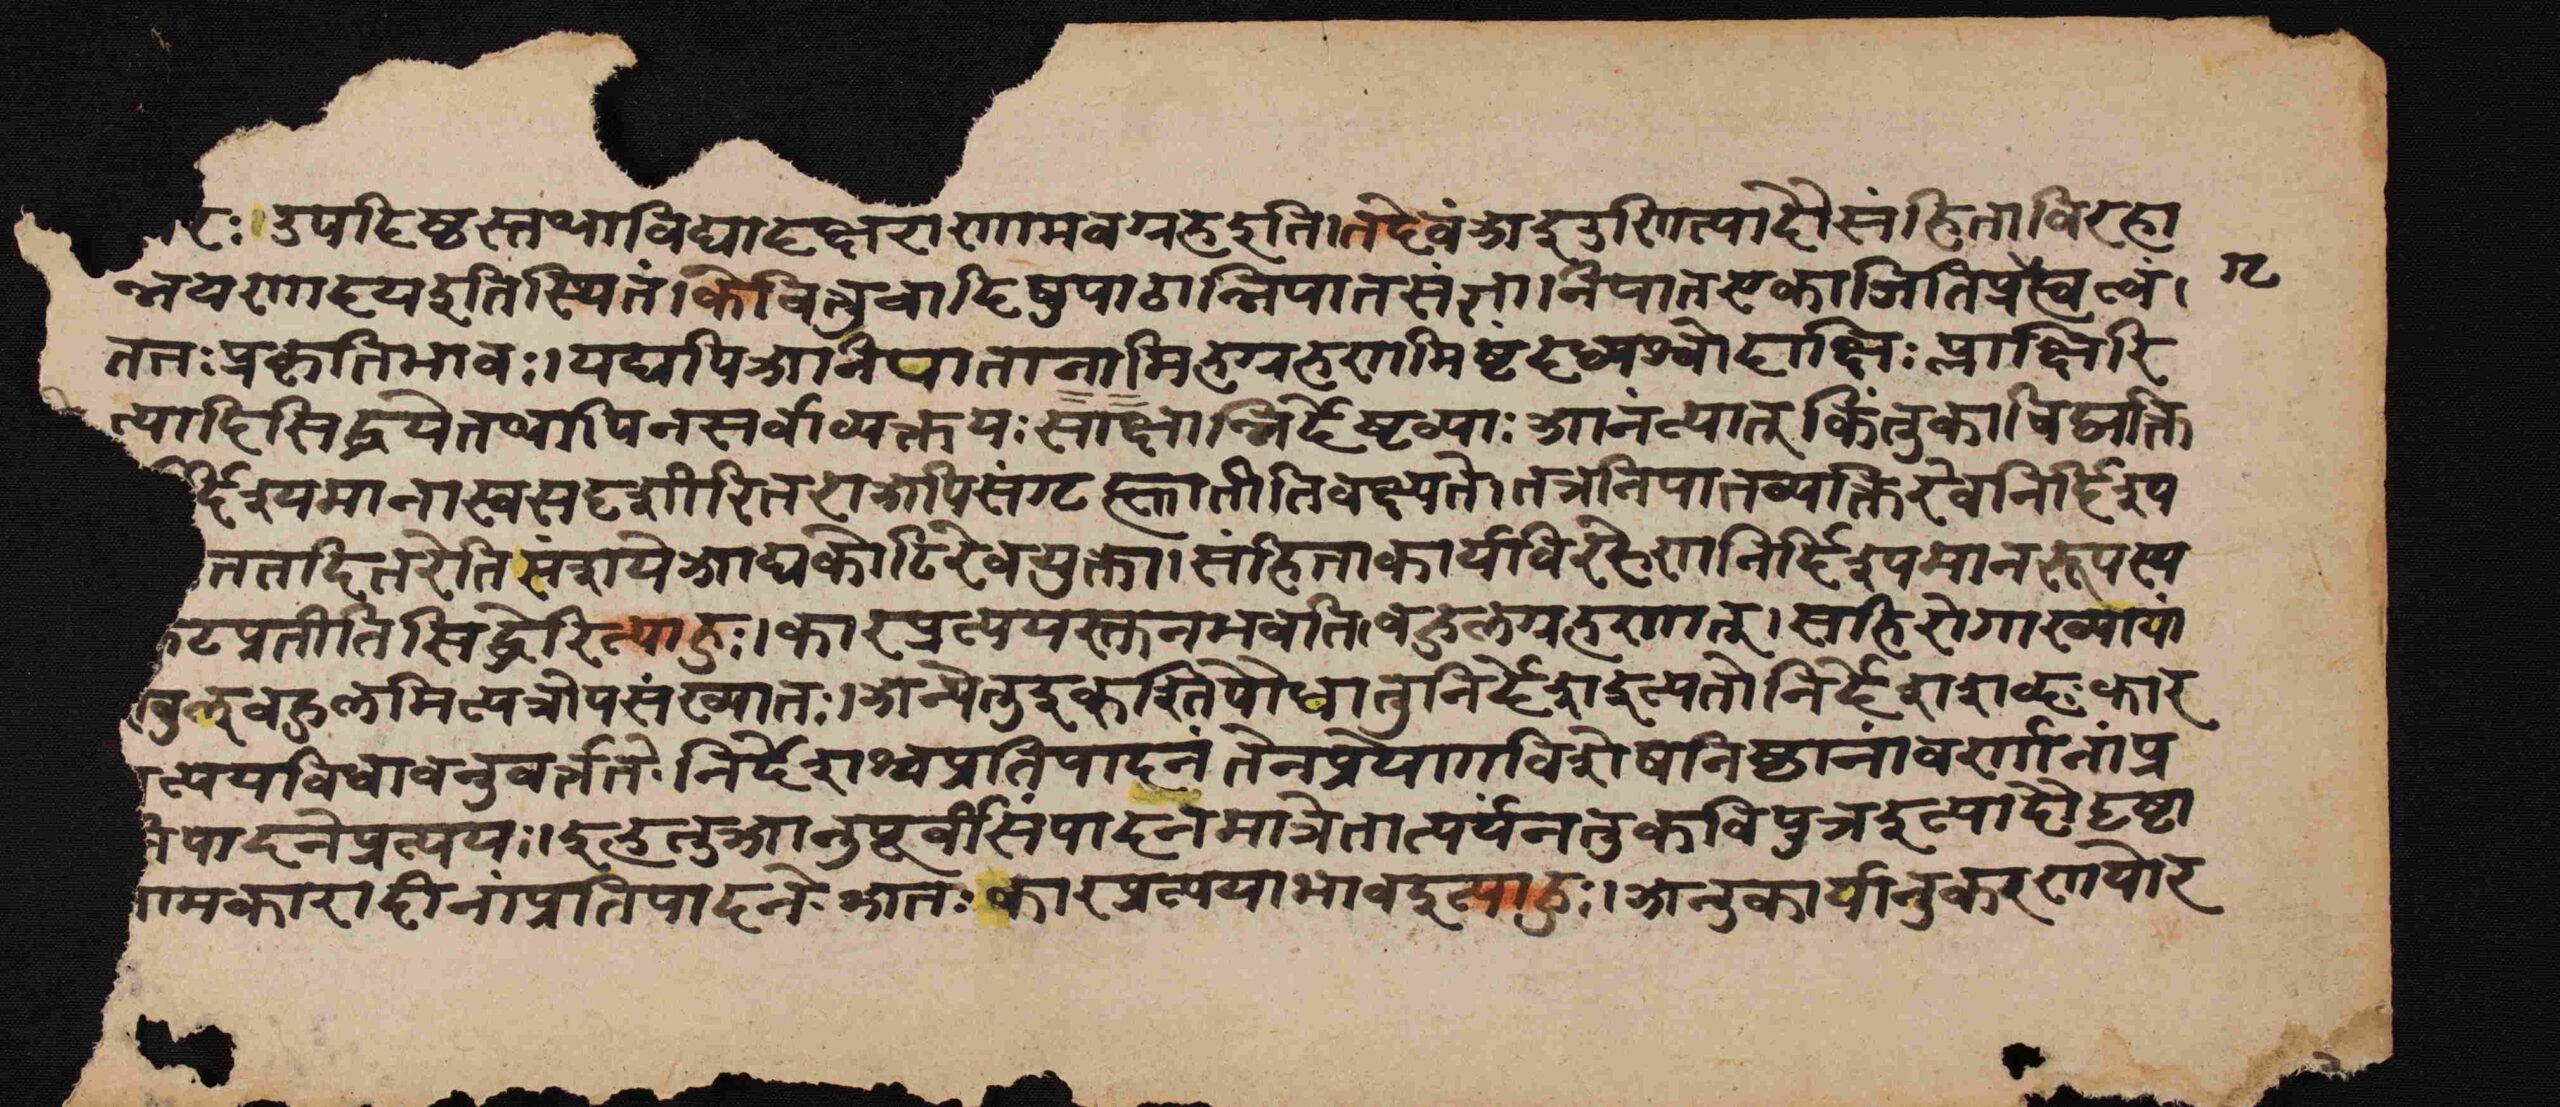 रः।उपदिष्टस्तथाविद्यादक्षराणामवग्रहइति।तदेवंअइउणित्यादौसंहिताविरहा
श्रयणादयइतिस्थितं।केचित्तुचादिषुपाठान्निपातसंज्ञा।निपातएकाजितिप्रगृह्यत्वं। गृ
ततःप्रकृतिभावः।यद्यपिअनिपातानामिहग्रहणमिष्टंदध्यश्वोदाक्षिःप्लाक्षिरि
त्यादिसिद्धयेतथापिनसर्वाव्यक्तयःसाक्षान्निर्देष्टव्याःआनंत्यात्किंतुकाचिद्व्यक्ति
र्निर्दिश्यमानास्वसदृशीरितराअपिसंगृह्णातीतिवक्ष्यते।तत्रनिपातव्यक्तिरेवनिर्दिश्य
ततदितरेतिसंशयेआद्यकोटिरेवयुक्ता।संहिताकार्यविरहेणनिर्दिश्यमानरूपस्य
टप्रतीतिसिद्धेरित्याहुः।कारप्रत्ययस्तुनभवति।बहुलग्रहणात्।सहिरोगाख्यायां
ण्वुल्बहुलमित्यत्रोपसंख्यातः।अन्येतुइक्श्तिपौधातुनिर्देशइत्यतोनिर्देशशब्दःकार
त्ययविधावनुवर्त्तते।निर्देशश्चप्रतिपादनंतेनप्रयोगविशेषनिष्ठानांवर्णानांप्र
तिपादनेप्रत्ययः।इहतुआनुपूर्वीसंपादनमात्रेतात्पर्यंनतुकविपुत्रइत्यादौदृष्टा
नामकारादीनांप्रतिपादनेअतःकारप्रत्ययाभावइत्याहुः।अनुकार्यानुकरणयोर